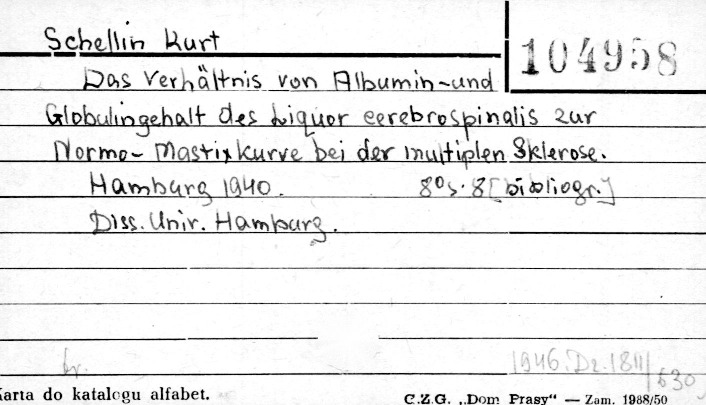 Schellin Kurt
104958
Das Verhältnis von Albumin-und
Globulingehalt des Liquor cerebrospinalis zur
Normo-Mastixkurve bei der multiplen Sklerose.
Hamburg 1940. 8° s. 8 [bibliogr.]
Diss. Univ. Hamburg.
br.
1946. Dz. 1811/630
Karta do katalogu alfabet.
C.Z.G. „Dom Prasy" — Zam. 1988/50